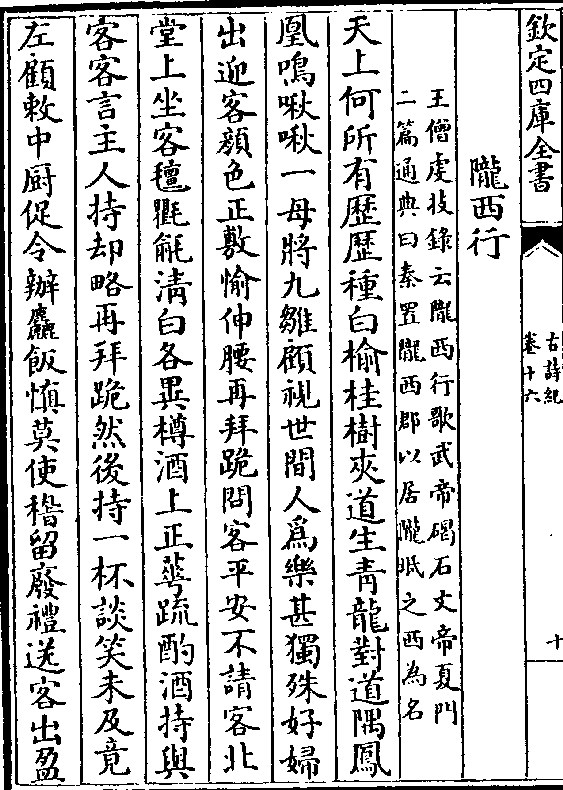 欽定四庫全書
古詩紀
卷十六
十
隴西行
王僧虔技錄云隴西行歌武帝碣石文帝夏門
二篇通典曰秦置隴西郡以居隴坻之西為名
天上何所有歷歷種白榆桂樹夾道生青龍對道隅鳳
凰鳴啾啾一母將九雛顧視世間人為樂甚獨殊好婦
出迎客顏色正敷愉伸腰再拜跪問客平安不請客北
堂上坐客氊氍毹清白各異樽酒上正華疏酌酒持與
客客言主人持却略再拜跪然後持一杯談笑未及竟
左顧敕中厨促令辦麤飯慎莫使稽留廢禮送客出盈